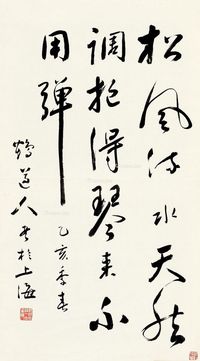 松風流水天然
調抱得琴来不
用彈
乙亥季春
道人書於上海